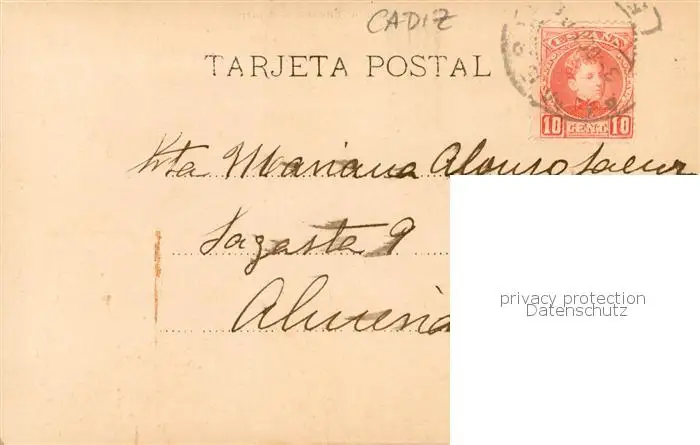 CADIZ
TARJETA POSTAL
ESPAÑA
10 CENT. 10
Srta Mariana Alonso
Sagasta 9
Almeria
privacy protection
Datenschutz